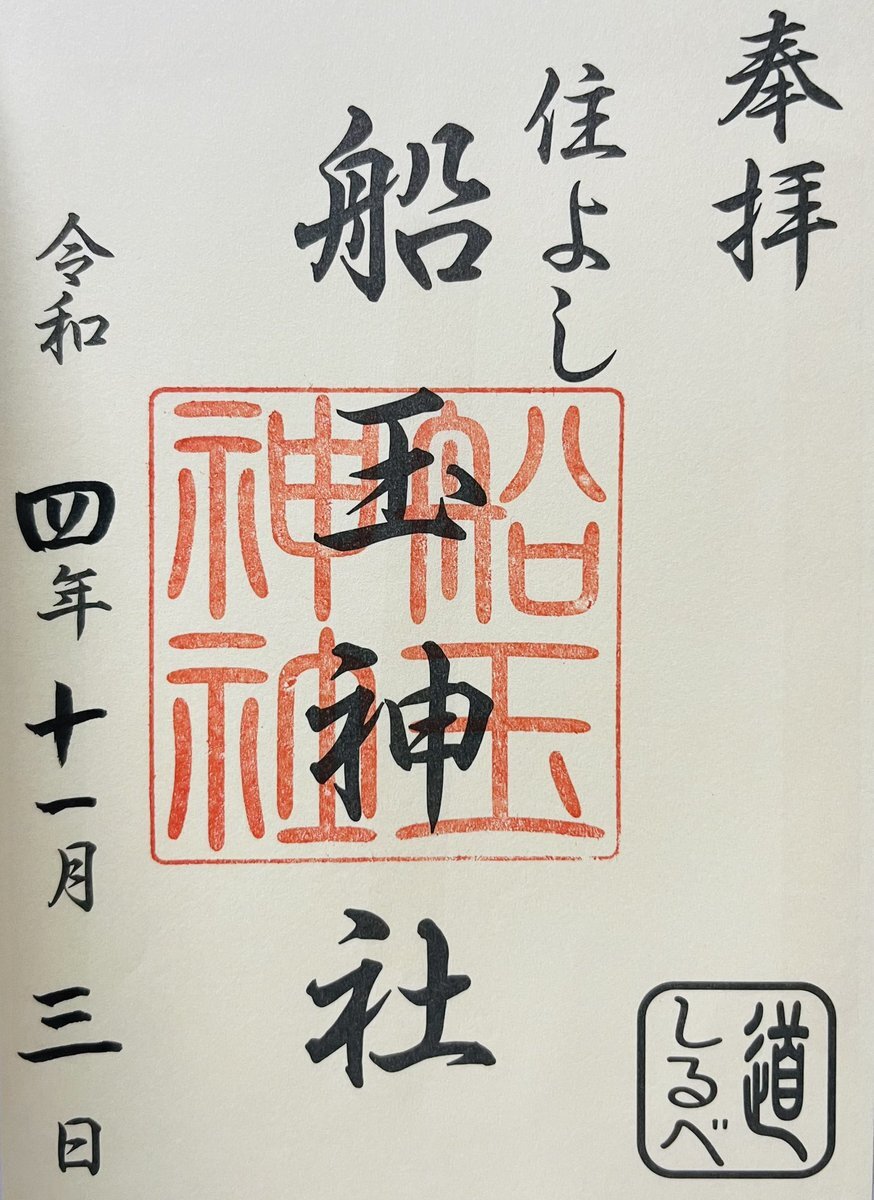 奉拝
住よし
船玉神社
船玉神社
令和四年十一月三日
道しるべ